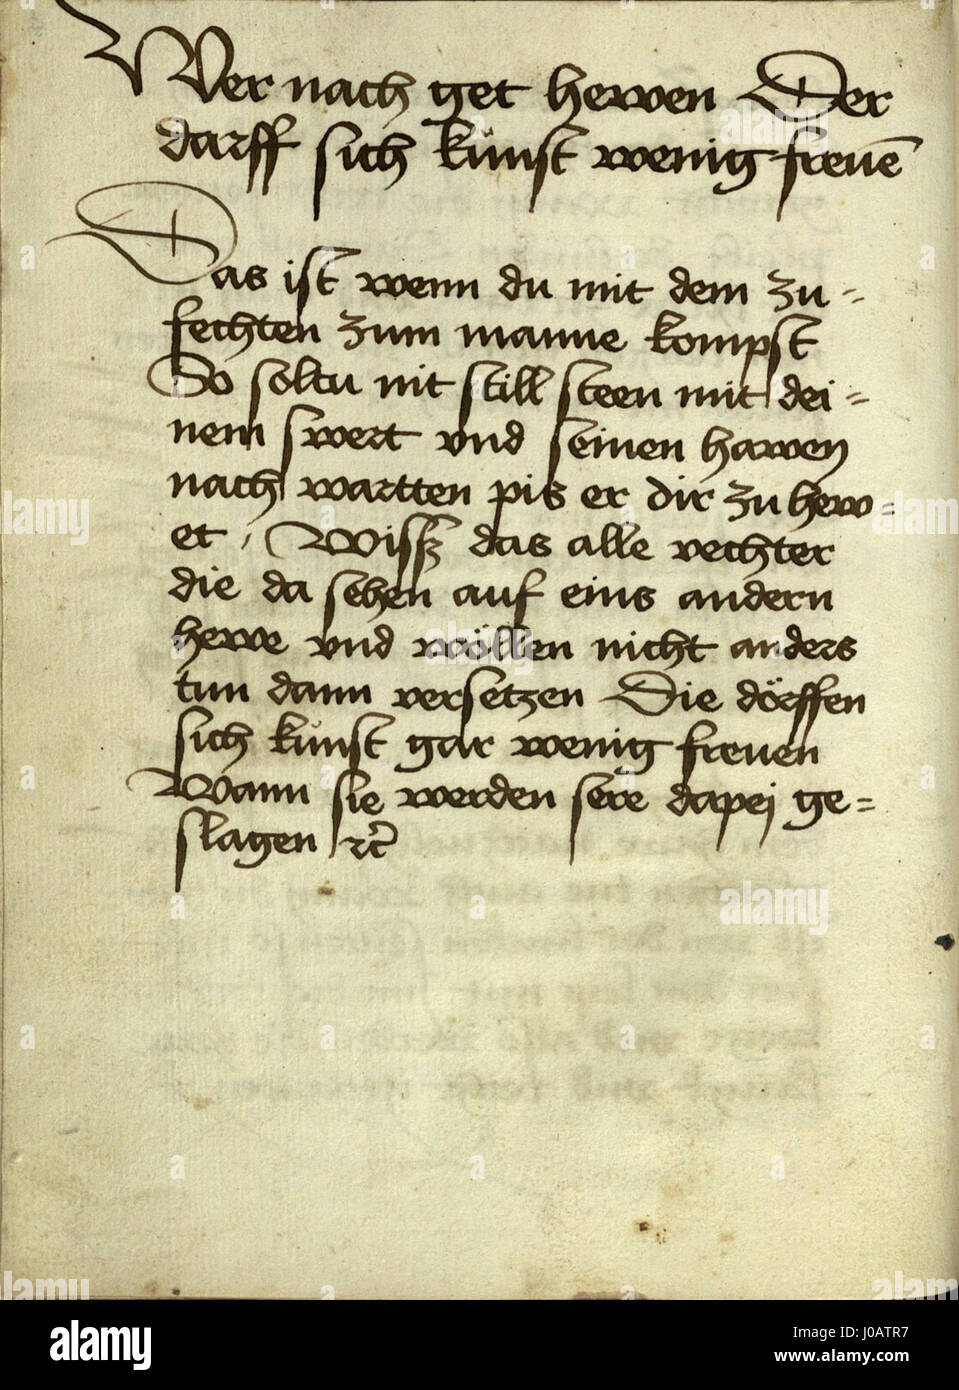 Wer nach get hewen Der
darff sich kunst wenig freuē
Das ist wenn du mit dem zu=
fechten zum manne kompst
So soltu nit still steen mit dei=
nem swert vnd seinen hawen
nach wartten pis er dir zu hew=
et, Wissz das alle vechter
die da sehen auf eins andern
hewe vnd wöllen nicht anders
tun dann versetzen Die dörffen
sich kunst gar wenig freuen
Wann sie werden sere dapej ge=
slagen
alamy
Image ID: J0ATR7
www.alamy.com